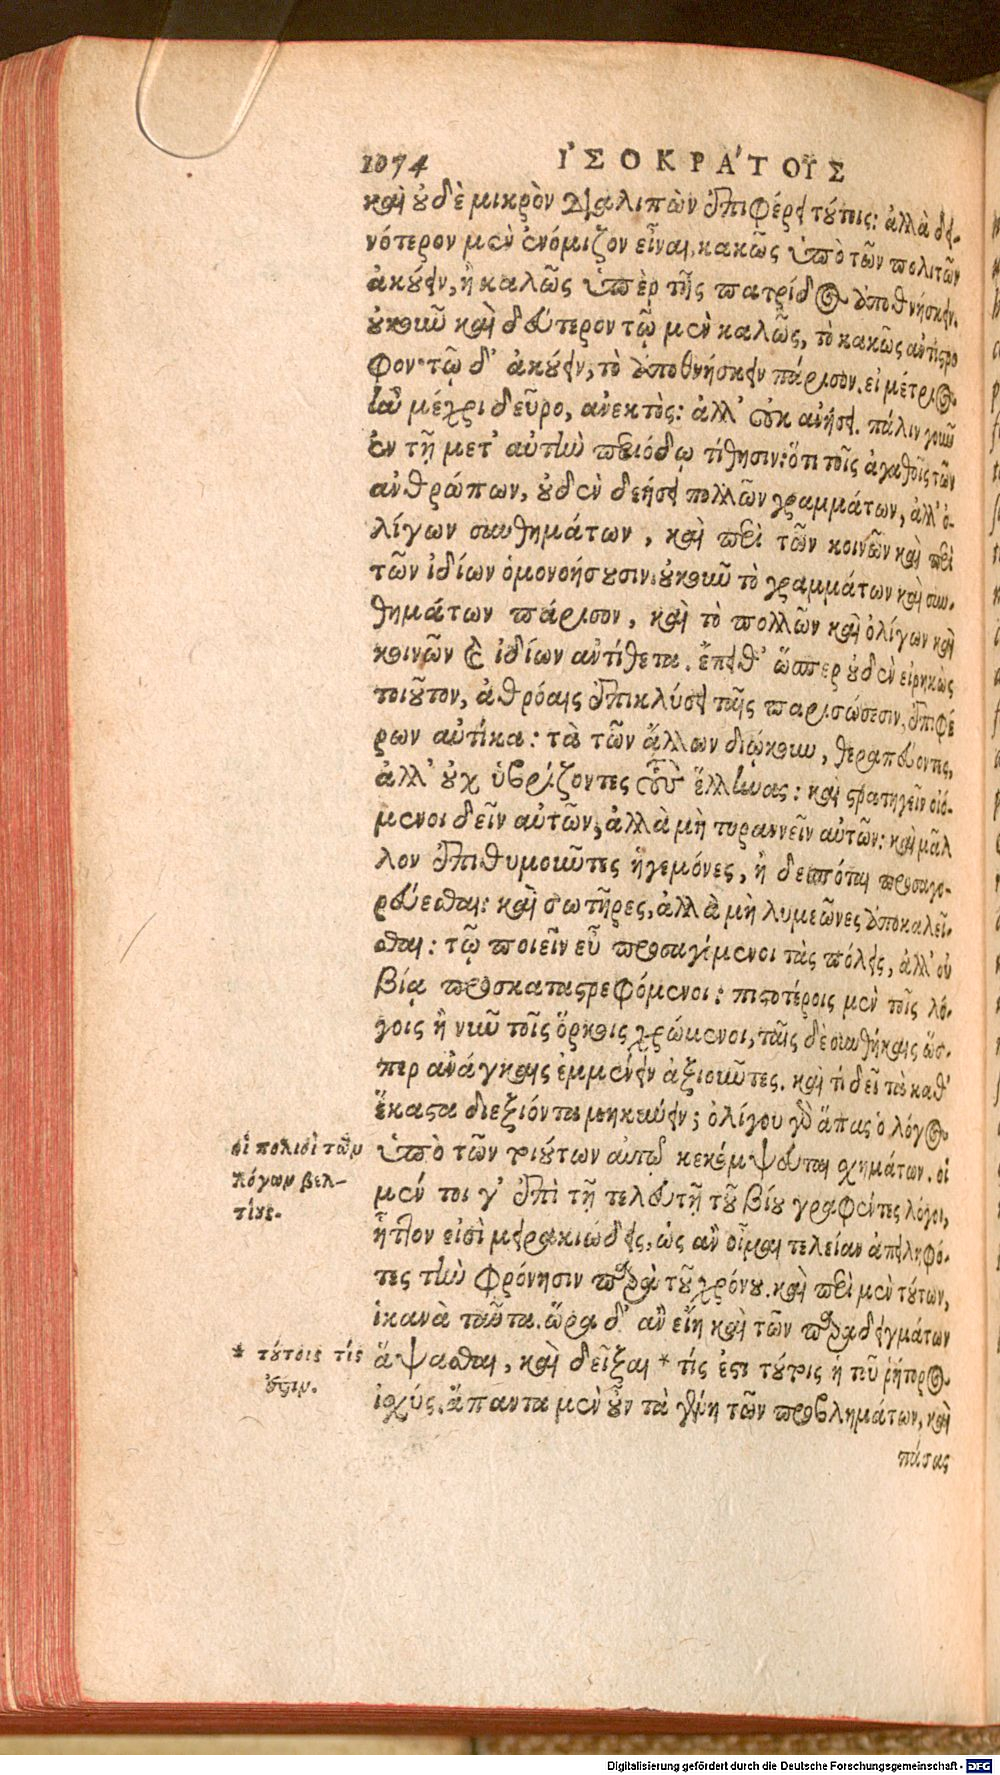 1074 ἸΣΟΚΡΑΤΟΥΣ
καὶ οὐδὲ μικρὸν διαλιπὼν ἐπιφέρει τούτοις: ἀλλὰ δει-
νότερον μὲν ἐνόμιζον εἶναι, κακῶς ὑπὸ τῶν πολιτῶν
ἀκούειν, ἢ καλῶς ὑπὲρ τῆς πατρίδος ἀποθνήσκειν.
οὐκοῦν καὶ δεύτερον τῷ μὲν καλῶς, τὸ κακῶς ἀντίστρο
φον· τῷ δ' ἀκούειν, τὸ ἀποθνήσκειν πάρισον. εἰ μέτριος
ἦν μέχρι δεῦρο, ἀνεκτός: ἀλλ' οὐκ ἀνήσει. πάλιν γοῦν
ἐν τῇ μετ' αὐτὴν περιόδῳ τίθησιν: ὅτι τοῖς ἀγαθοῖς τῶν
ἀνθρώπων, οὐδὲν δεήσει πολλῶν γραμμάτων, ἀλλ' ὀ-
λίγων συνθημάτων, καὶ περὶ τῶν κοινῶν καὶ περὶ
τῶν ἰδίων ὁμονοήσουσιν. οὐκοῦν τὸ γραμμάτων καὶ συν-
θημάτων πάρισον, καὶ τὸ πολλῶν καὶ ὀλίγων καὶ
κοινῶν καὶ ἰδίων ἀντίθετα. ἔπειθ' ὥσπερ οὐδὲν εἰρηκὼς
τοιοῦτον, ἀθρόαις ἐπικλύσει ταῖς παρισώσεσιν, ἐπιφέ
ρων αὐτίκα: τὰ τῶν ἄλλων διῴκουν, θεραπεύοντες,
ἀλλ' οὐχ ὑβρίζοντες τοὺς ἕλληνας: καὶ στρατηγεῖν οἰό-
μενοι δεῖν αὐτῶν, ἀλλὰ μὴ τυραννεῖν αὐτῶν: καὶ μᾶλ
λον ἐπιθυμοῦντες ἡγεμόνες, ἢ δεσπόται προσαγο-
ρεύεσθαι: καὶ σωτῆρες, ἀλλὰ μὴ λυμεῶνες ἀποκαλεῖ-
σθαι: τῷ ποιεῖν εὖ προσαγόμενοι τὰς πόλεις, ἀλλ' οὐ
βίᾳ προσκαταστρεφόμενοι: πιστοτέροις μὲν τοῖς λό-
γοις ἢ νῦν τοῖς ὅρκοις χρώμενοι, ταῖς δὲ συνθήκαις ὥσ-
περ ἀνάγκαις ἐμμένειν ἀξιοῦντες. καὶ τί δεῖ τὰ καθ'
ἕκαστα διεξιόντα μηκύνειν; ὀλίγου γὰρ ἅπας ὁ λόγος
ὑπὸ τῶν τοιούτων αὐτῷ κεκόμψευται σχημάτων. οἱ
μέν τοι γ' ἐπὶ τῇ τελευτῇ τοῦ βίου γραφέντες λόγοι,
ἧττον εἰσὶ μειρακιώδεις, ὡς ἂν οἶμαι τελείαν ἀπειληφό-
τες τὴν φρόνησιν παρὰ τοῦ χρόνου. καὶ περὶ μὲν τούτων,
ἱκανὰ ταῦτα. ὥρα δ' ἂν εἴη καὶ τῶν παραδειγμάτων
ἅψασθαι, καὶ δεῖξαι * τίς ἐστι τούτοις ἡ τοῦ ῥήτορος
ἰσχύς. ἅπαντα μὲν οὖν τὰ γένη τῶν προβλημάτων, καὶ
πάσας
οἱ πολιοὶ τῶν
λόγων βελ-
τίους.
* τούτοις τίς
ἐστιν.
Digitalisierung gefördert durch die Deutsche Forschungsgemeinschaft - DFG